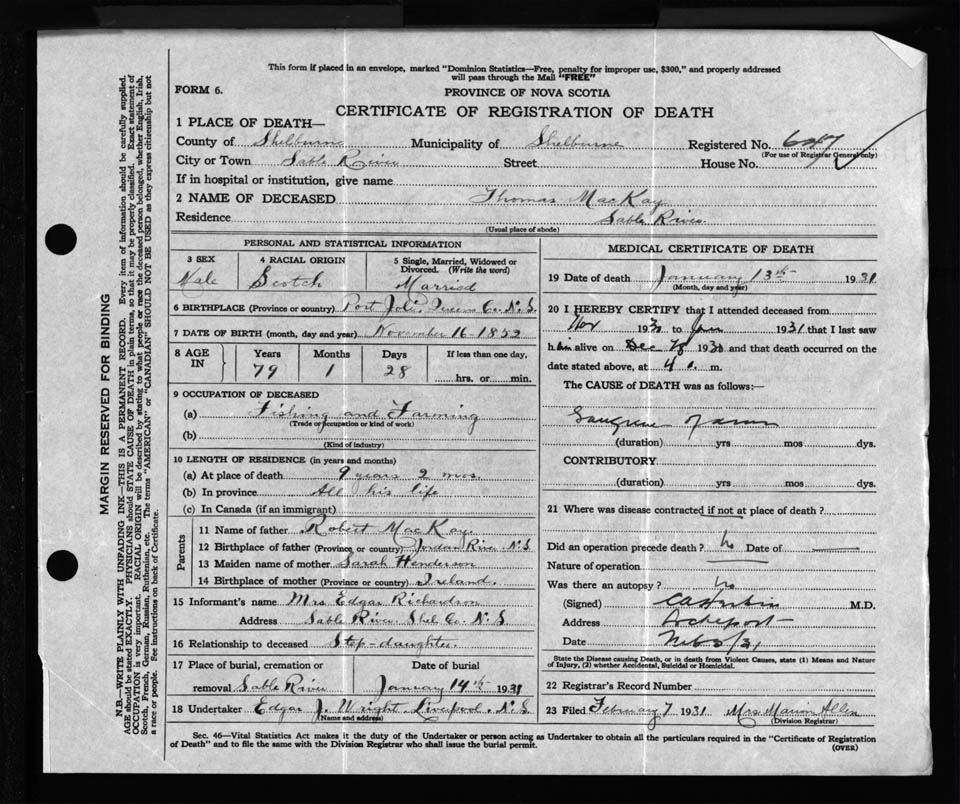 This form if placed in an envelope, marked "Dominion Statistics—Free, penalty for improper use, $300," and properly addressed
will pass through the Mail "FREE"
FORM 6.
PROVINCE OF NOVA SCOTIA
CERTIFICATE OF REGISTRATION OF DEATH
1 PLACE OF DEATH—
County of Shelburne Municipality of Shelburne Registered No. 647
(For use of Registrar General only)
City or Town Sable River Street House No.
If in hospital or institution, give name
2 NAME OF DECEASED Thomas MacKay
Residence Sable River
(Usual place of abode)
PERSONAL AND STATISTICAL INFORMATION
3 SEX 4 RACIAL ORIGIN 5 Single, Married, Widowed or
Divorced. (Write the word)
Male Scotch Married
6 BIRTHPLACE (Province or country) Port Joli, Queens Co. N.S.
7 DATE OF BIRTH (month, day and year) November 16 - 1852
8 AGE IN Years Months Days If less than one day,
79 1 28 hrs. or min.
9 OCCUPATION OF DECEASED
(a) Fishing and Farming
(Trade or occupation or kind of work)
(b)
(Kind of industry)
10 LENGTH OF RESIDENCE (in years and months)
(a) At place of death 9 years 2 mos.
(b) In province All his life
(c) In Canada (if an immigrant)
Parents
11 Name of father Robert MacKay
12 Birthplace of father (Province or country) Jordan River N.S.
13 Maiden name of mother Sarah Henderson
14 Birthplace of mother (Province or country) Ireland.
15 Informant's name Mrs Edgar Richardson
Address Sable River. Shel Co. N.S.
16 Relationship to deceased Step-daughter.
17 Place of burial, cremation or Date of burial
removal Sable River January 14th 1931
18 Undertaker Edgar J. Wright Liverpool. N.S.
(Name and address)
MEDICAL CERTIFICATE OF DEATH
19 Date of death January 13th 1931
(Month, day and year)
20 I HEREBY CERTIFY that I attended deceased from
Nov 1930 to Jan 1931 that I last saw
him alive on Dec 1930 and that death occurred on the
date stated above, at 4 m.
The CAUSE of DEATH was as follows:—
Gangrene
(duration) yrs mos dys.
CONTRIBUTORY
(duration) yrs mos dys.
21 Where was disease contracted if not at place of death?
Did an operation precede death? No Date of
Nature of operation
Was there an autopsy? No
(Signed) M.D.
Address Lockeport
Date Feb 3/31
State the Disease causing Death, or in death from Violent Causes, state (1) Means and Nature
of Injury, (2) whether Accidental, Suicidal or Homicidal.
22 Registrar's Record Number
23 Filed February 7 1931 Mrs Marion Allen
(Division Registrar)
Sec. 46—Vital Statistics Act makes it the duty of the Undertaker or person acting as Undertaker to obtain all the particulars required in the "Certificate of Registration
of Death" and to file the same with the Division Registrar who shall issue the burial permit.
(OVER)
MARGIN RESERVED FOR BINDING
N.B.—WRITE PLAINLY WITH UNFADING INK—THIS IS A PERMANENT RECORD. Every item of information should be carefully supplied.
AGE should be stated EXACTLY. PHYSICIANS should STATE CAUSE OF DEATH in plain terms, so that it may be properly classified. Exact statement of
OCCUPATION is very important. RACIAL ORIGIN will be described by stating to what people or race the deceased person belonged, whether English, Irish,
Scotch, French, German, Russian, Ruthenian, etc. The terms "AMERICAN" or "CANADIAN" SHOULD NOT BE USED as they express citizenship but not
a race or people. See instructions on back of Certificate.